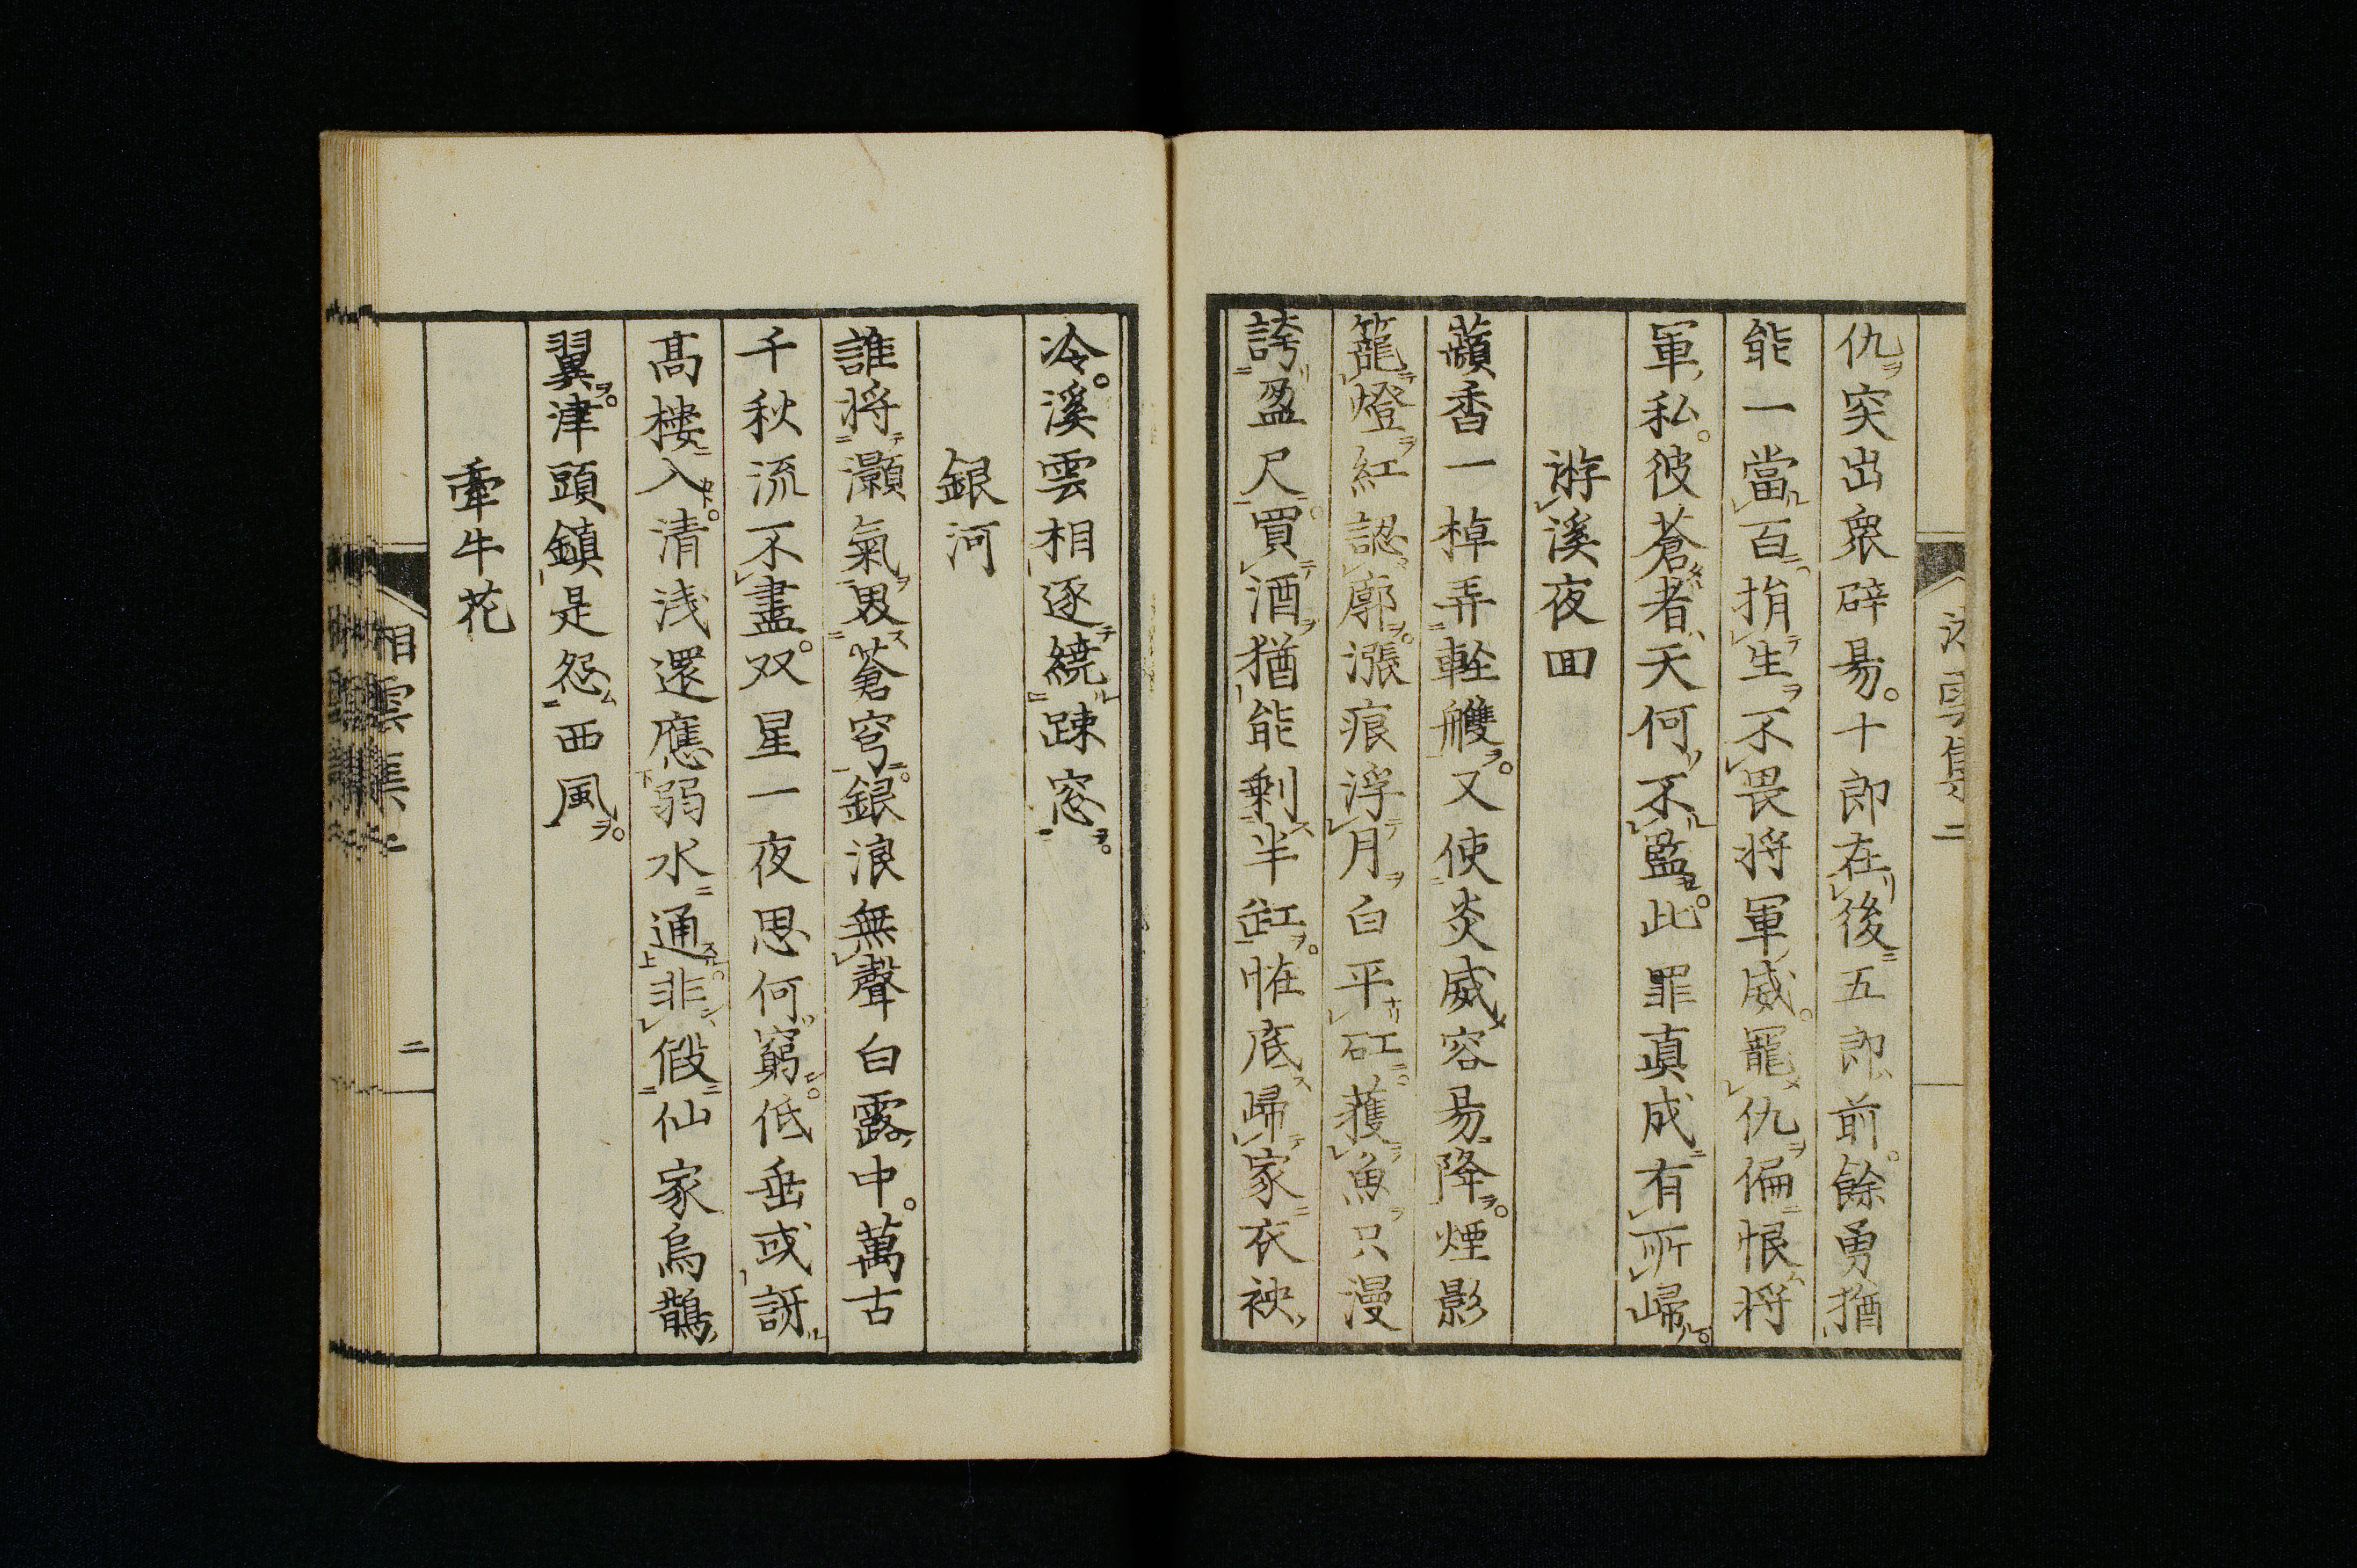 仇突出衆辟易十郎在後五郎前餘勇猶
能一當百捐生不畏將軍威罷仇偏恨將
軍私彼蒼者天何不監此罪眞成有所歸
游溪夜回
蘋香一棹弄輕艭又使炎威容易降煙影
籠燈紅認廓漲痕浮月白平矼獲魚只漫
誇盈尺買酒猶能剩半缸帷底歸家衣袂
冷溪雲相逐繞疎窓
銀河
誰將灝氣界蒼穹銀浪無聲白露中萬古
千秋流不盡双星一夜思何窮低垂或訝
髙樓入清浅還應弱水通非假仙家烏鵲
翼津頭鎮是怨西風
牽牛花
湘雲集
二